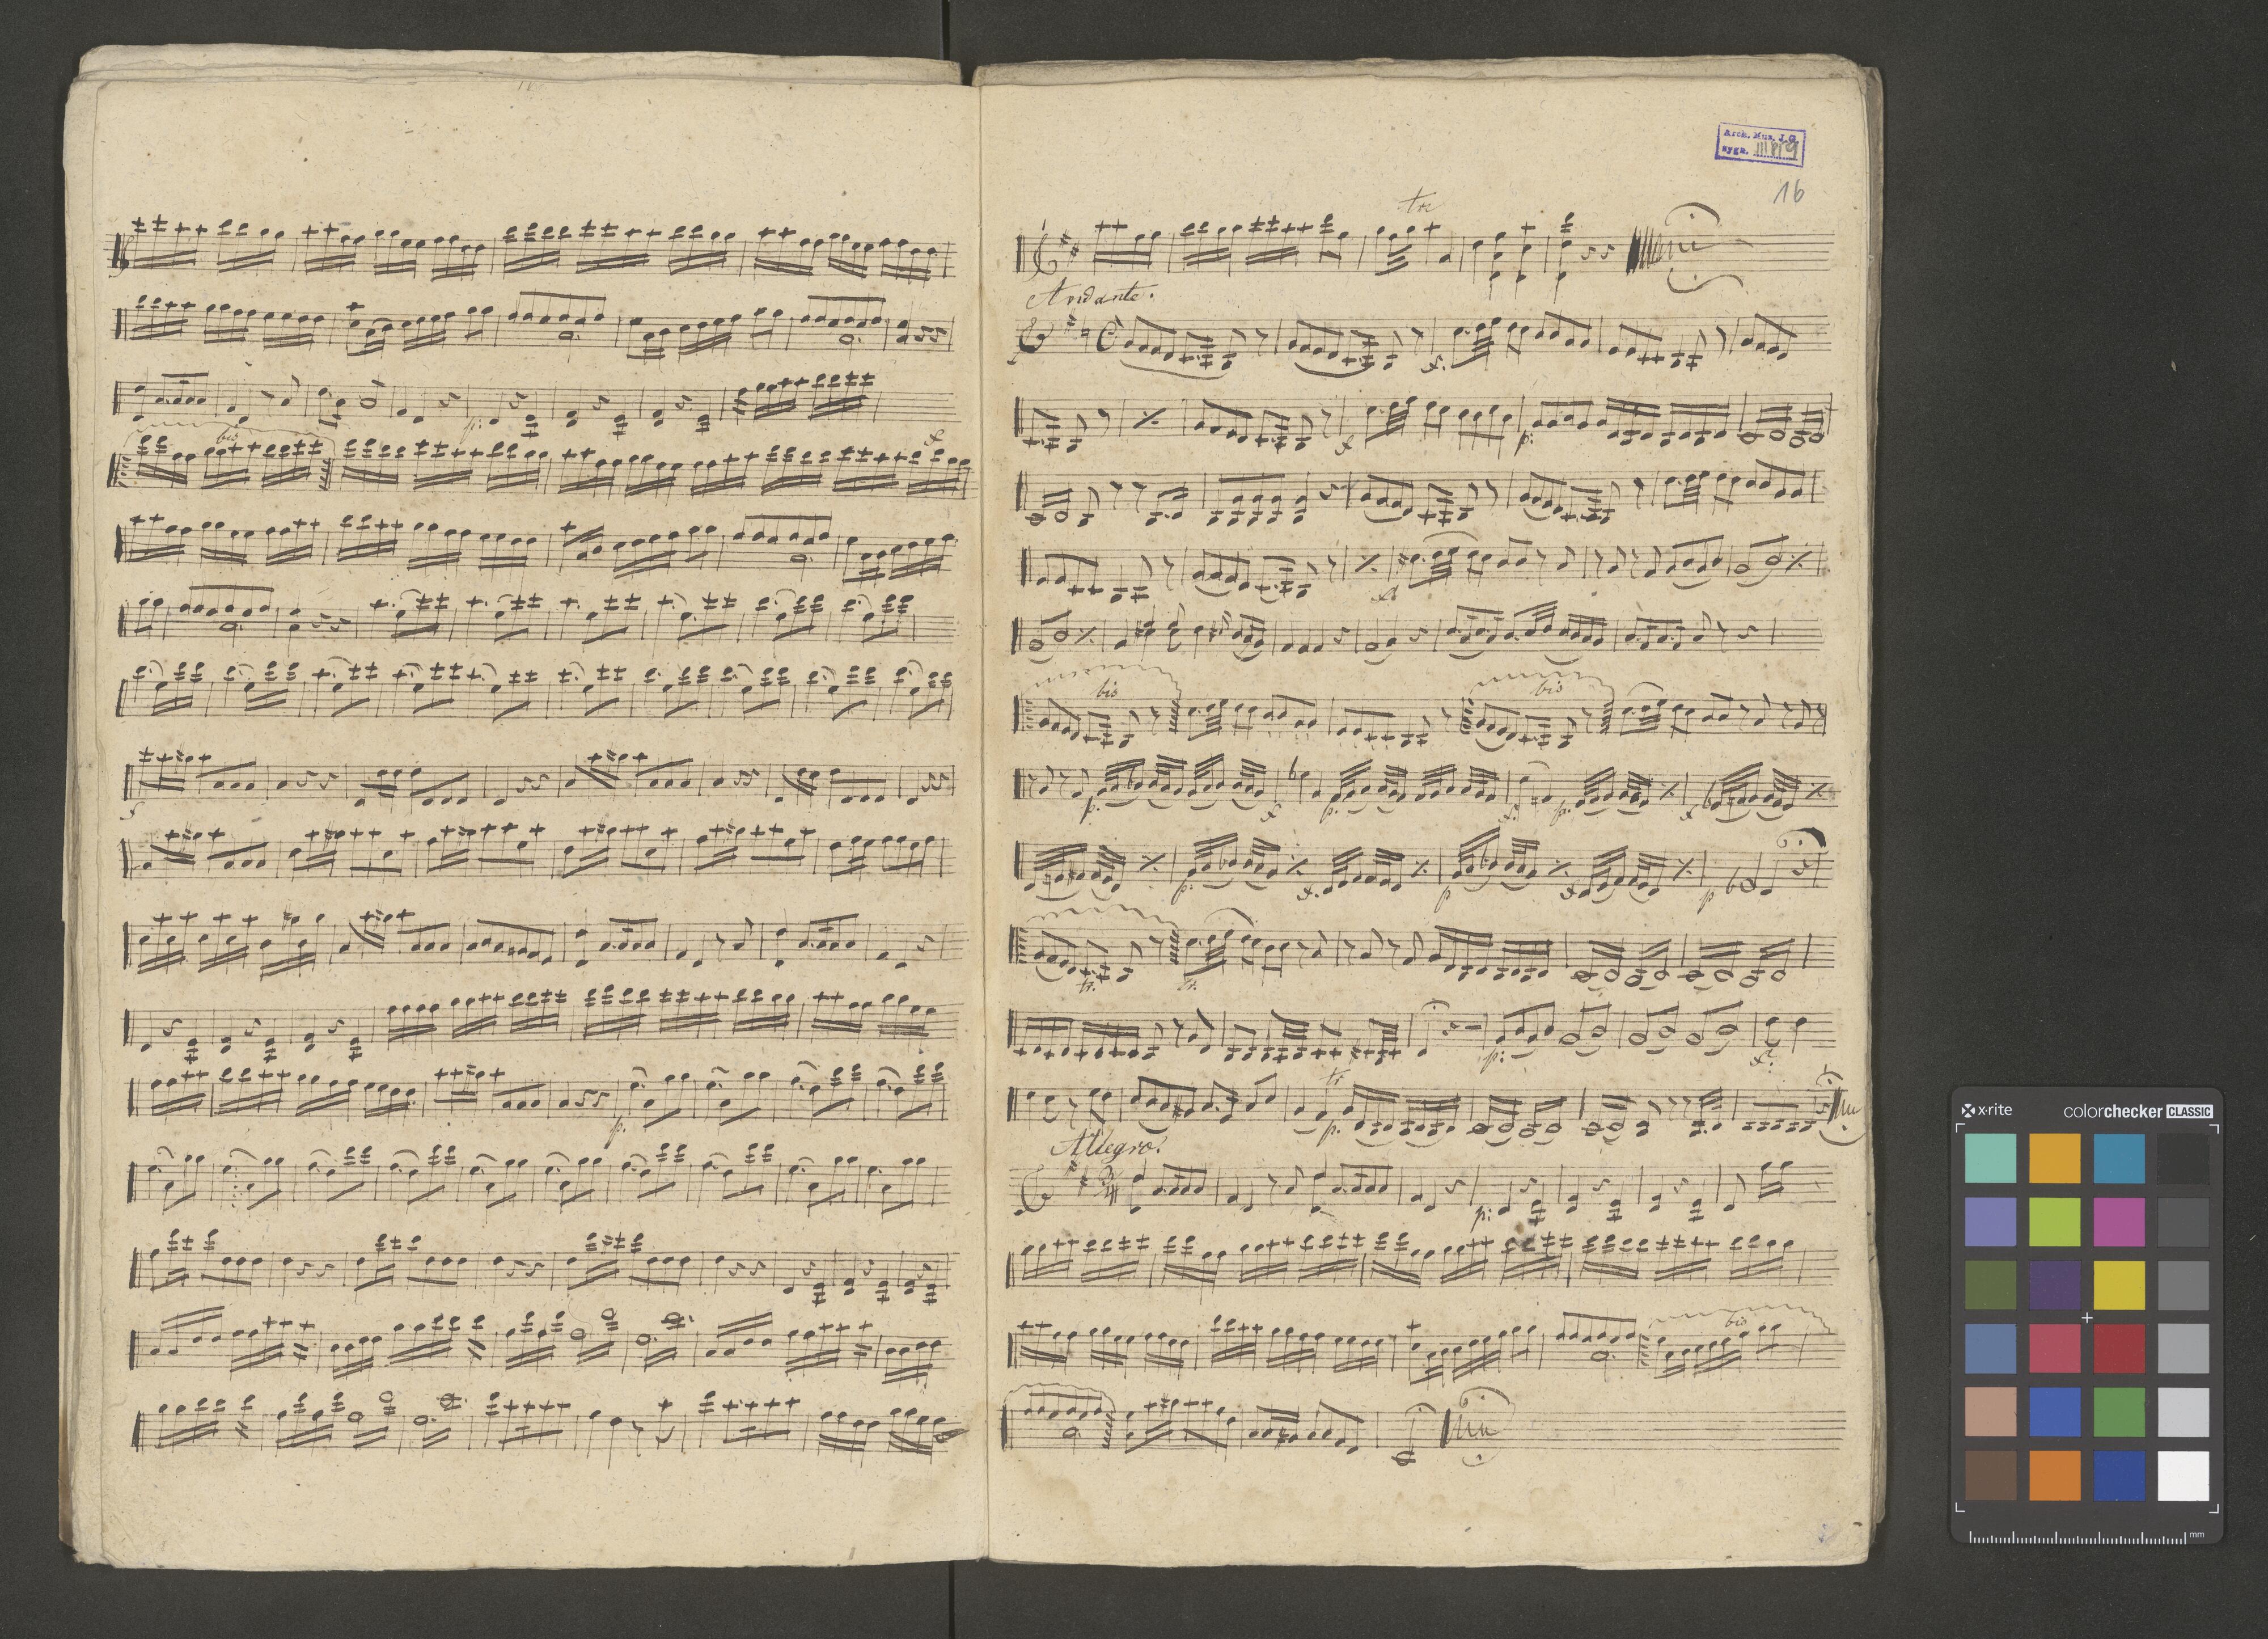 bis
p:
Arch. Mus. J.G.
sygn.
16
tr
Andante.
p:
bis
bis
p.
p.
p.
p:
p
p
tr.
tr.
p:
tr
p.
Allegro.
3/4
p:
bis
x-rite
colorchecker CLASSIC
mm